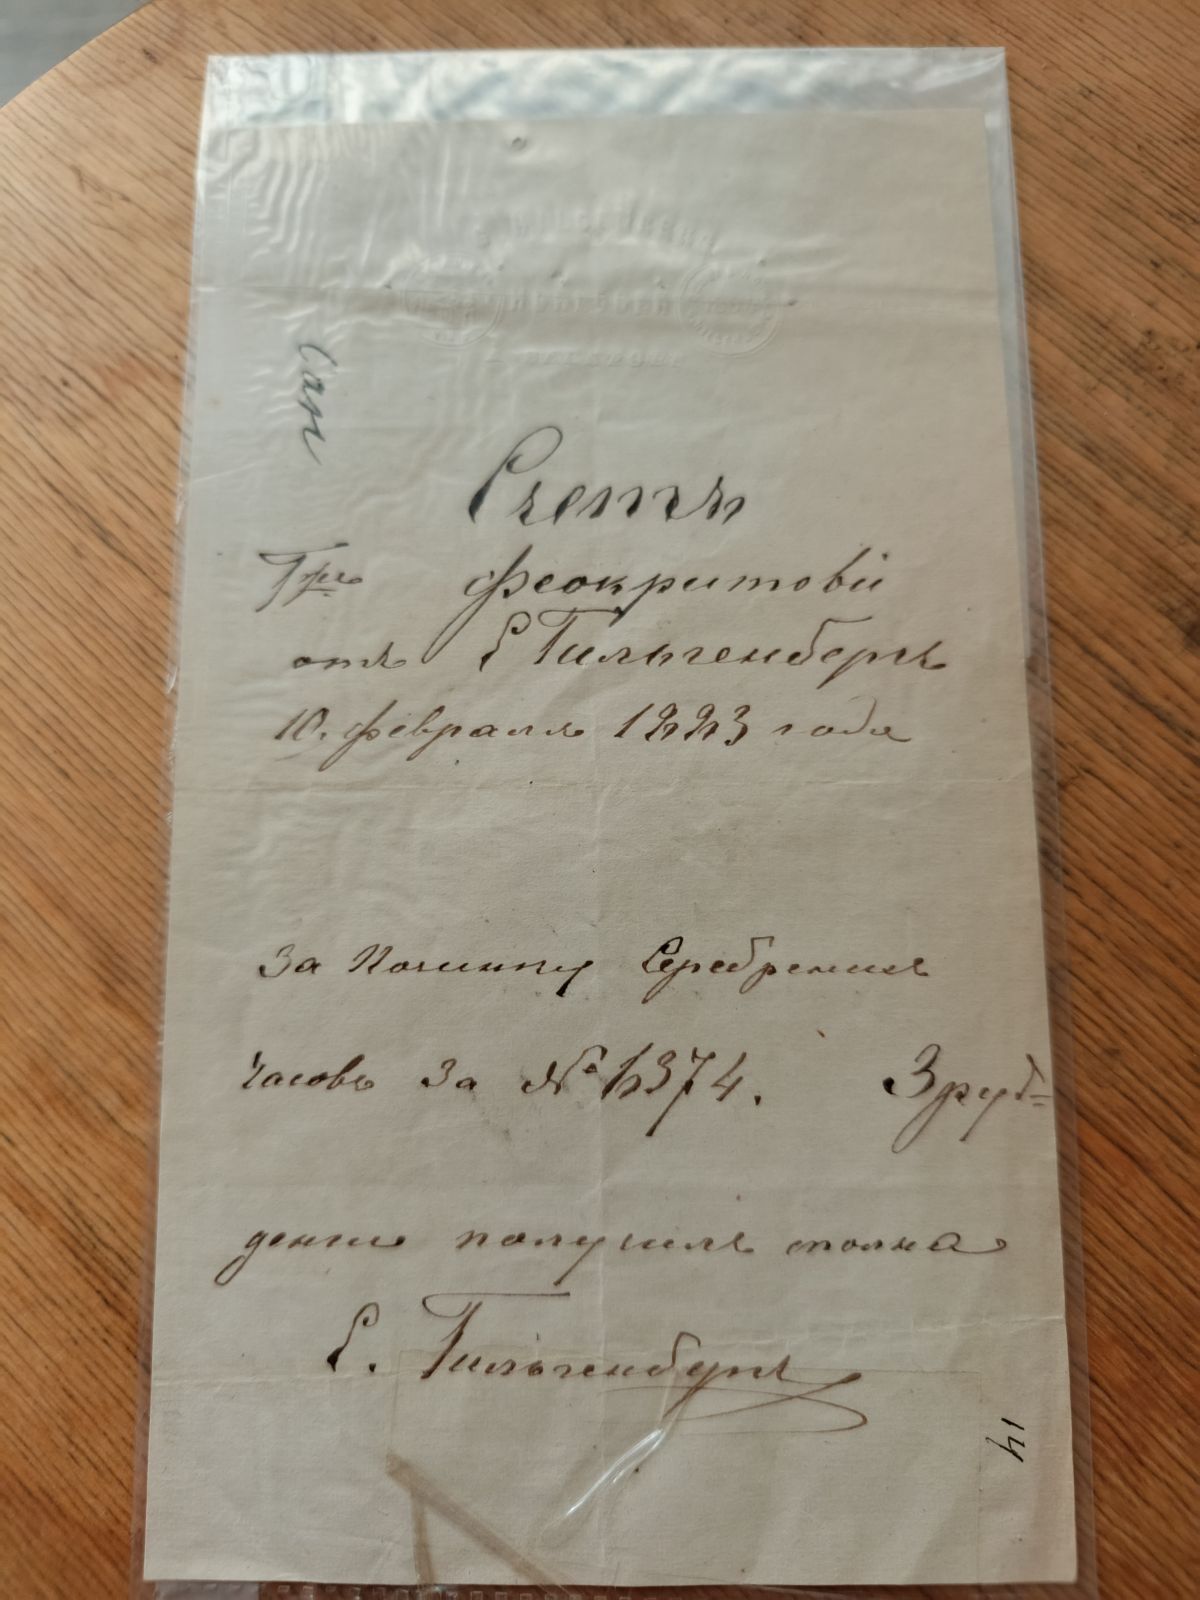 Сан
Счетъ
Гже Феокритовй
отъ Е Гильгенбергъ
10. февраля 1883 года
За Починку Серебренихъ
часовъ За № 1374. 3 руб=
денги получилъ полна
Е. Гильгенбергъ
14